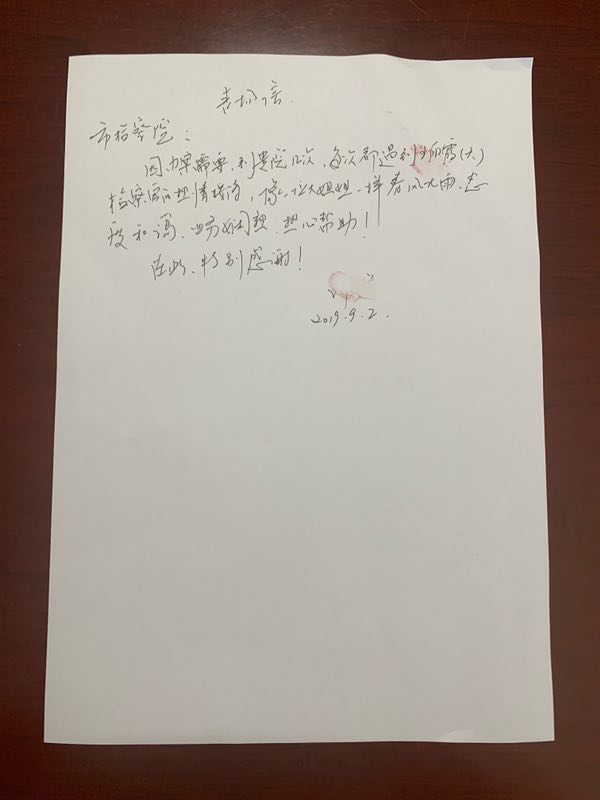 表扬信.
市检察院:
因办案需要,到贵院几次,每次都遇到 (大)
检察官热情接待,像一位大姐姐一样春风化雨、态
度和谒、业务娴熟、热心帮助!
在此、特别感谢!
2019.9.2.